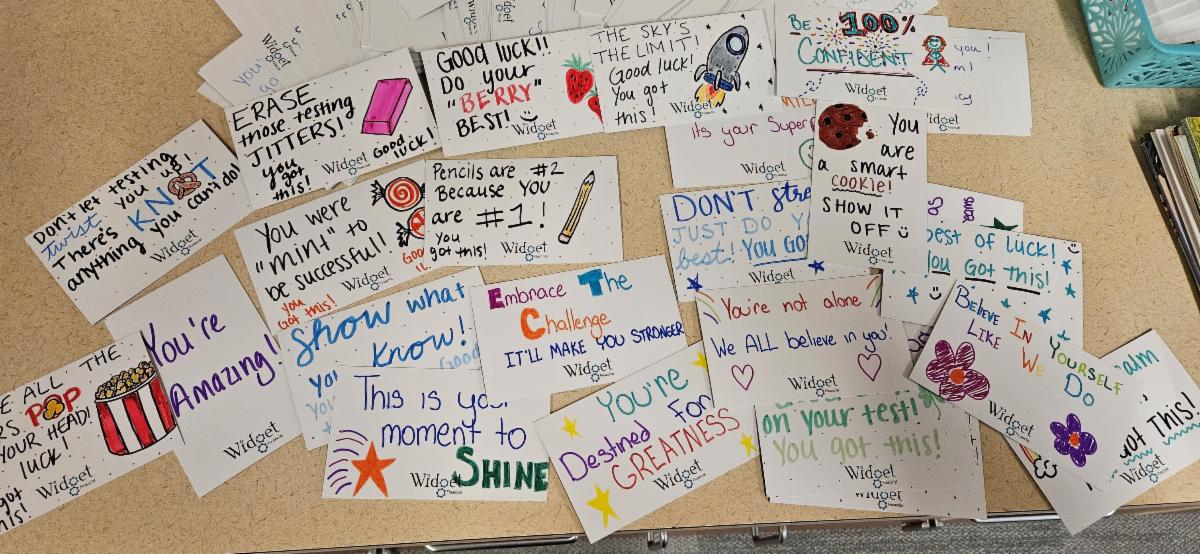 ERASE
those testing
JITTERS!
you
got
this!
Good
LUCK!
Widget
Financial
GOOD LUCK!!
DO your
"BERRY"
BEST!
Widget
Financial
THE SKY'S
THE LIMIT!
Good luck!
You got
this!
Widget
Financial
BE 100%
CONFIDENT
Widget
Financial
you!
Widget
Financial
its your Super
Widget
You
are
a smart
COOKIE!
SHOW IT
OFF
Widget
Financial
Don't let testing
Twist you up!
There's KNOT
anything you can't do!
Widget
Financial
You were
"mint" to
be successful!
you
Got this!
Good
Widget
Financial
Pencils are #2
Because YOU
are #1!
You
got this!
Widget
Financial
DON'T Stre
JUST DO Y
best! YOU GO
Widget
Financial
best of luck!
You Got this!
ALL THE
POP
YOUR HEAD!
LUCK!
got
Widget
Financial
You're
Amazing!
Widget
Financial
Show what
Know!
Good
You
Embrace The
Challenge
IT'LL MAKE YOU STRONGER
Widget
Financial
You're not alone
We ALL believe in you!
Widget
Financial
BELIEVE IN YOURSELF
LIKE WE DO
Widget
Financial
This is you
moment to
SHINE
Widget
Financial
YOU'RE
Destined For
GREATNESS
Widget
Financial
on your testing
You got this!
Widget
Financial
Widget
Financial
alm
got This!
Widget
Financial